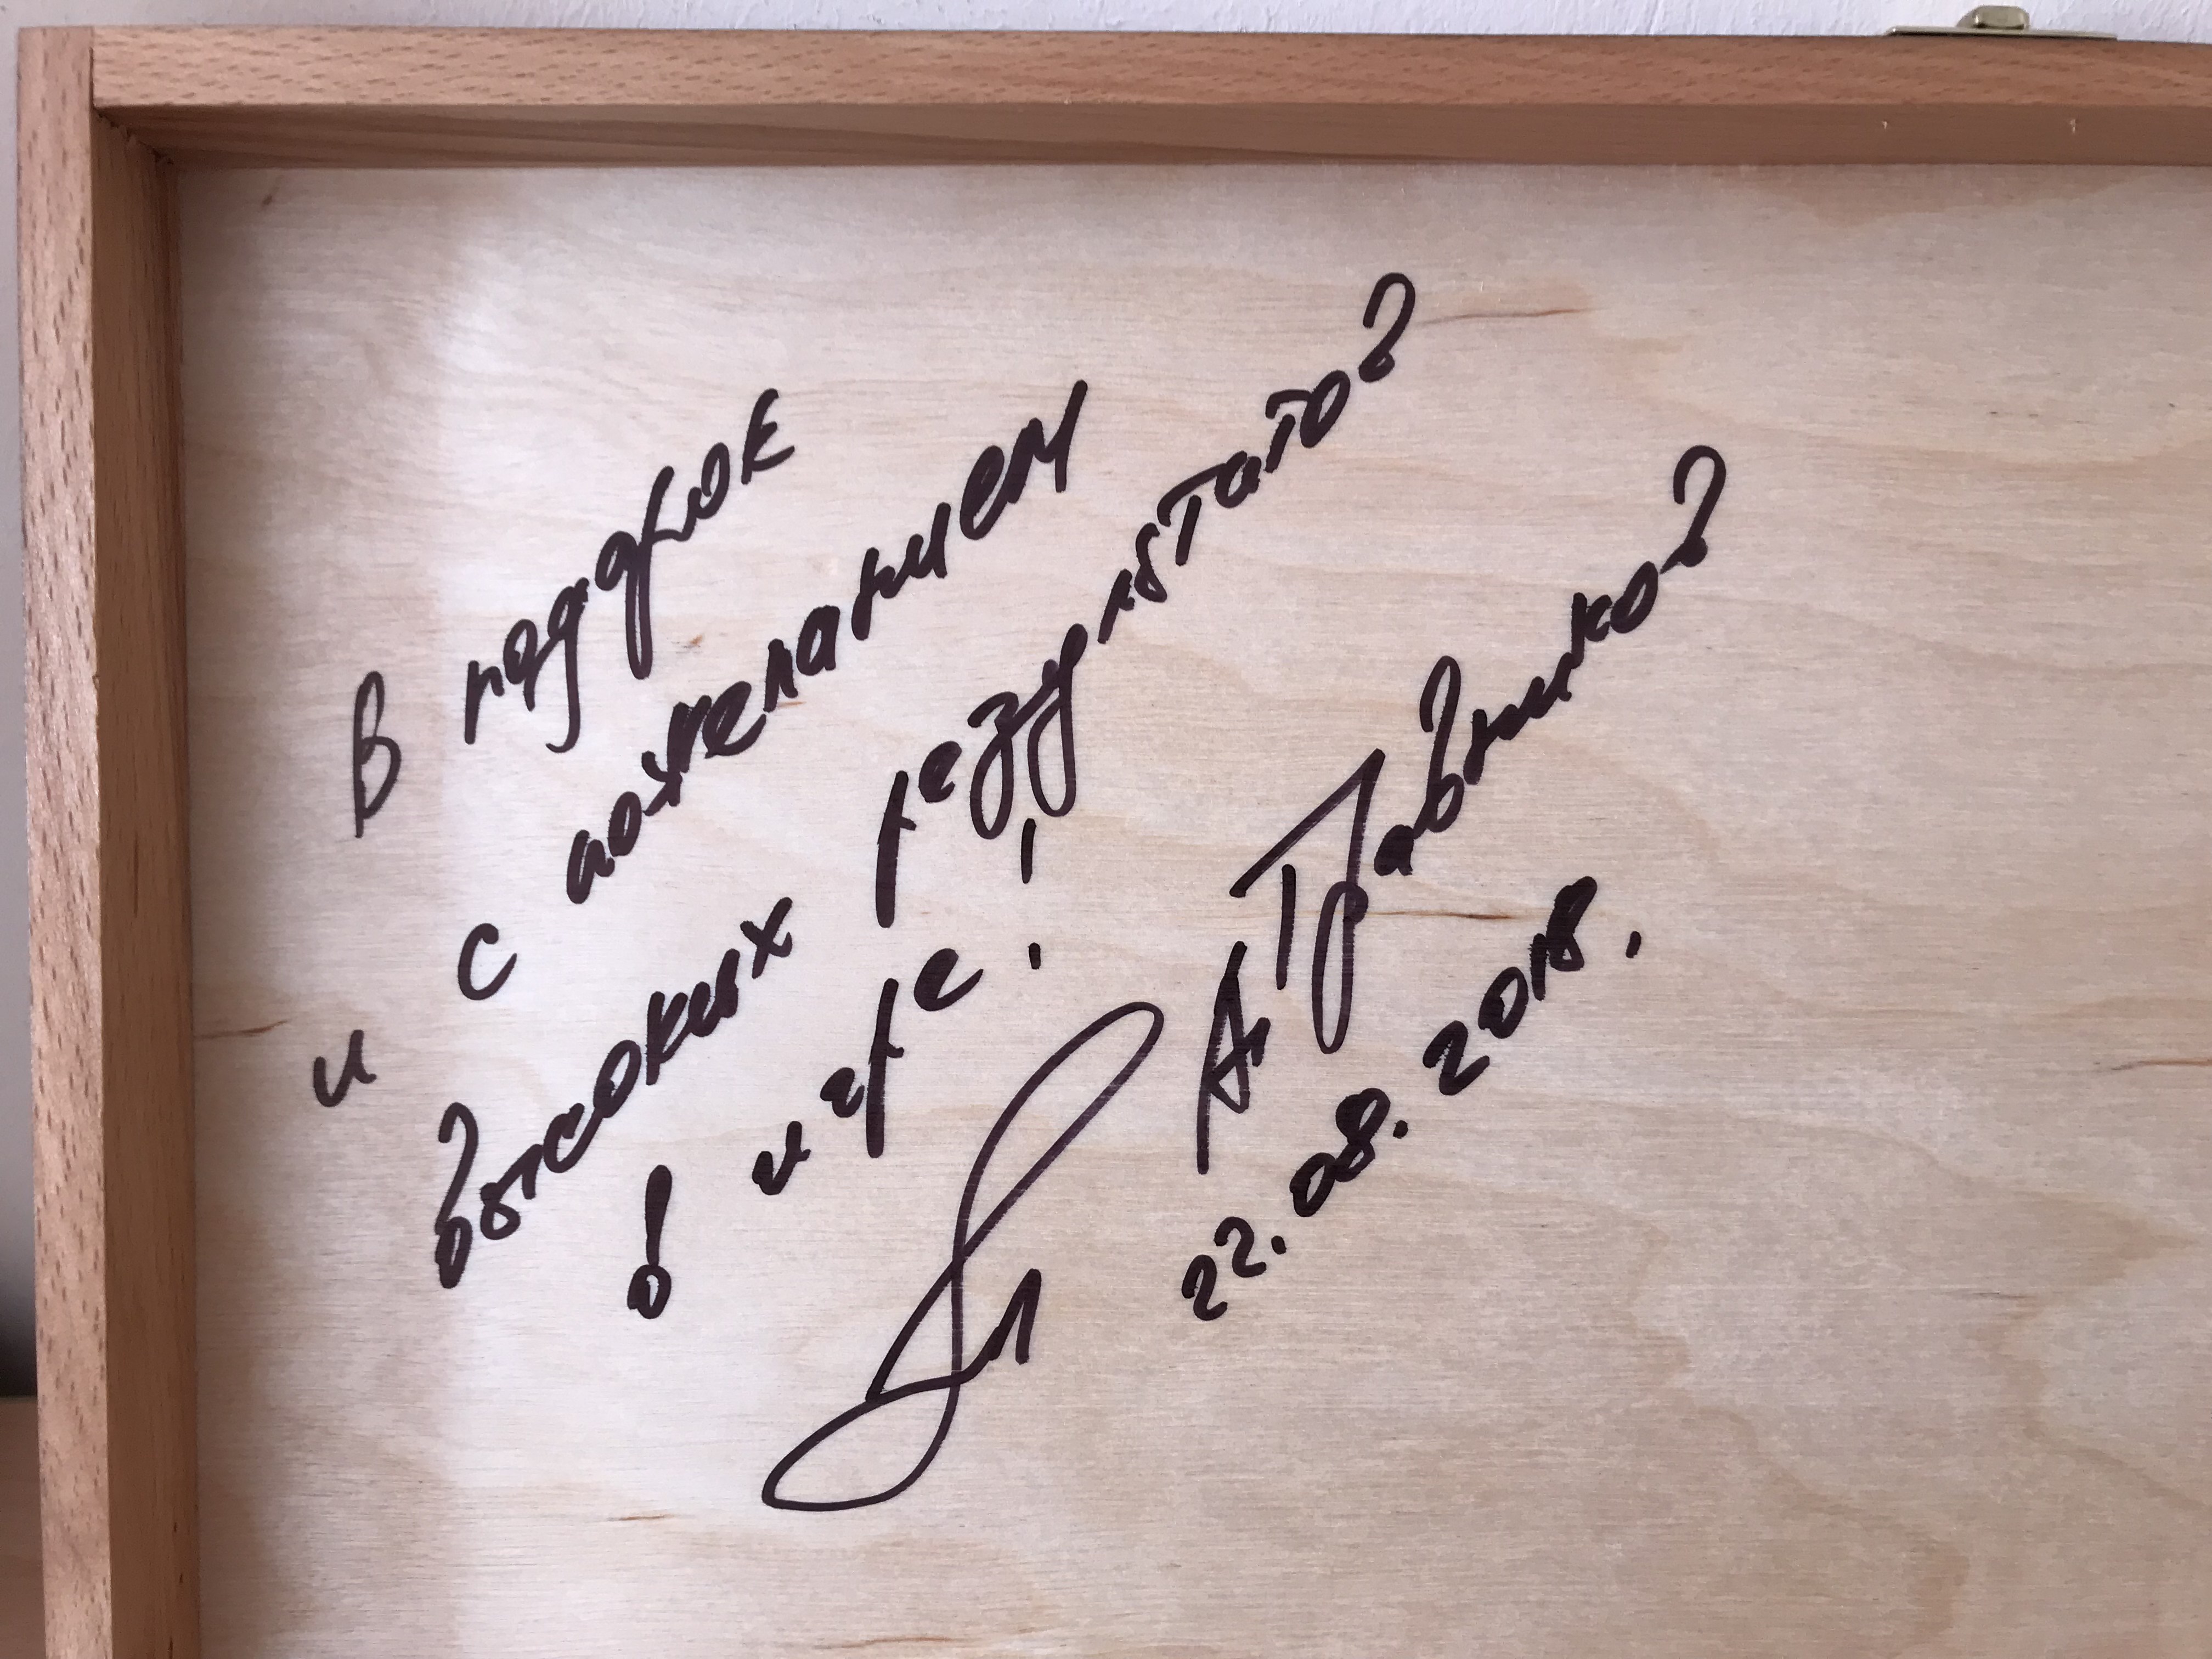 В подарок
и с пожеланием
высоких результатов
в игре!
А. Травников
22.08.2018.